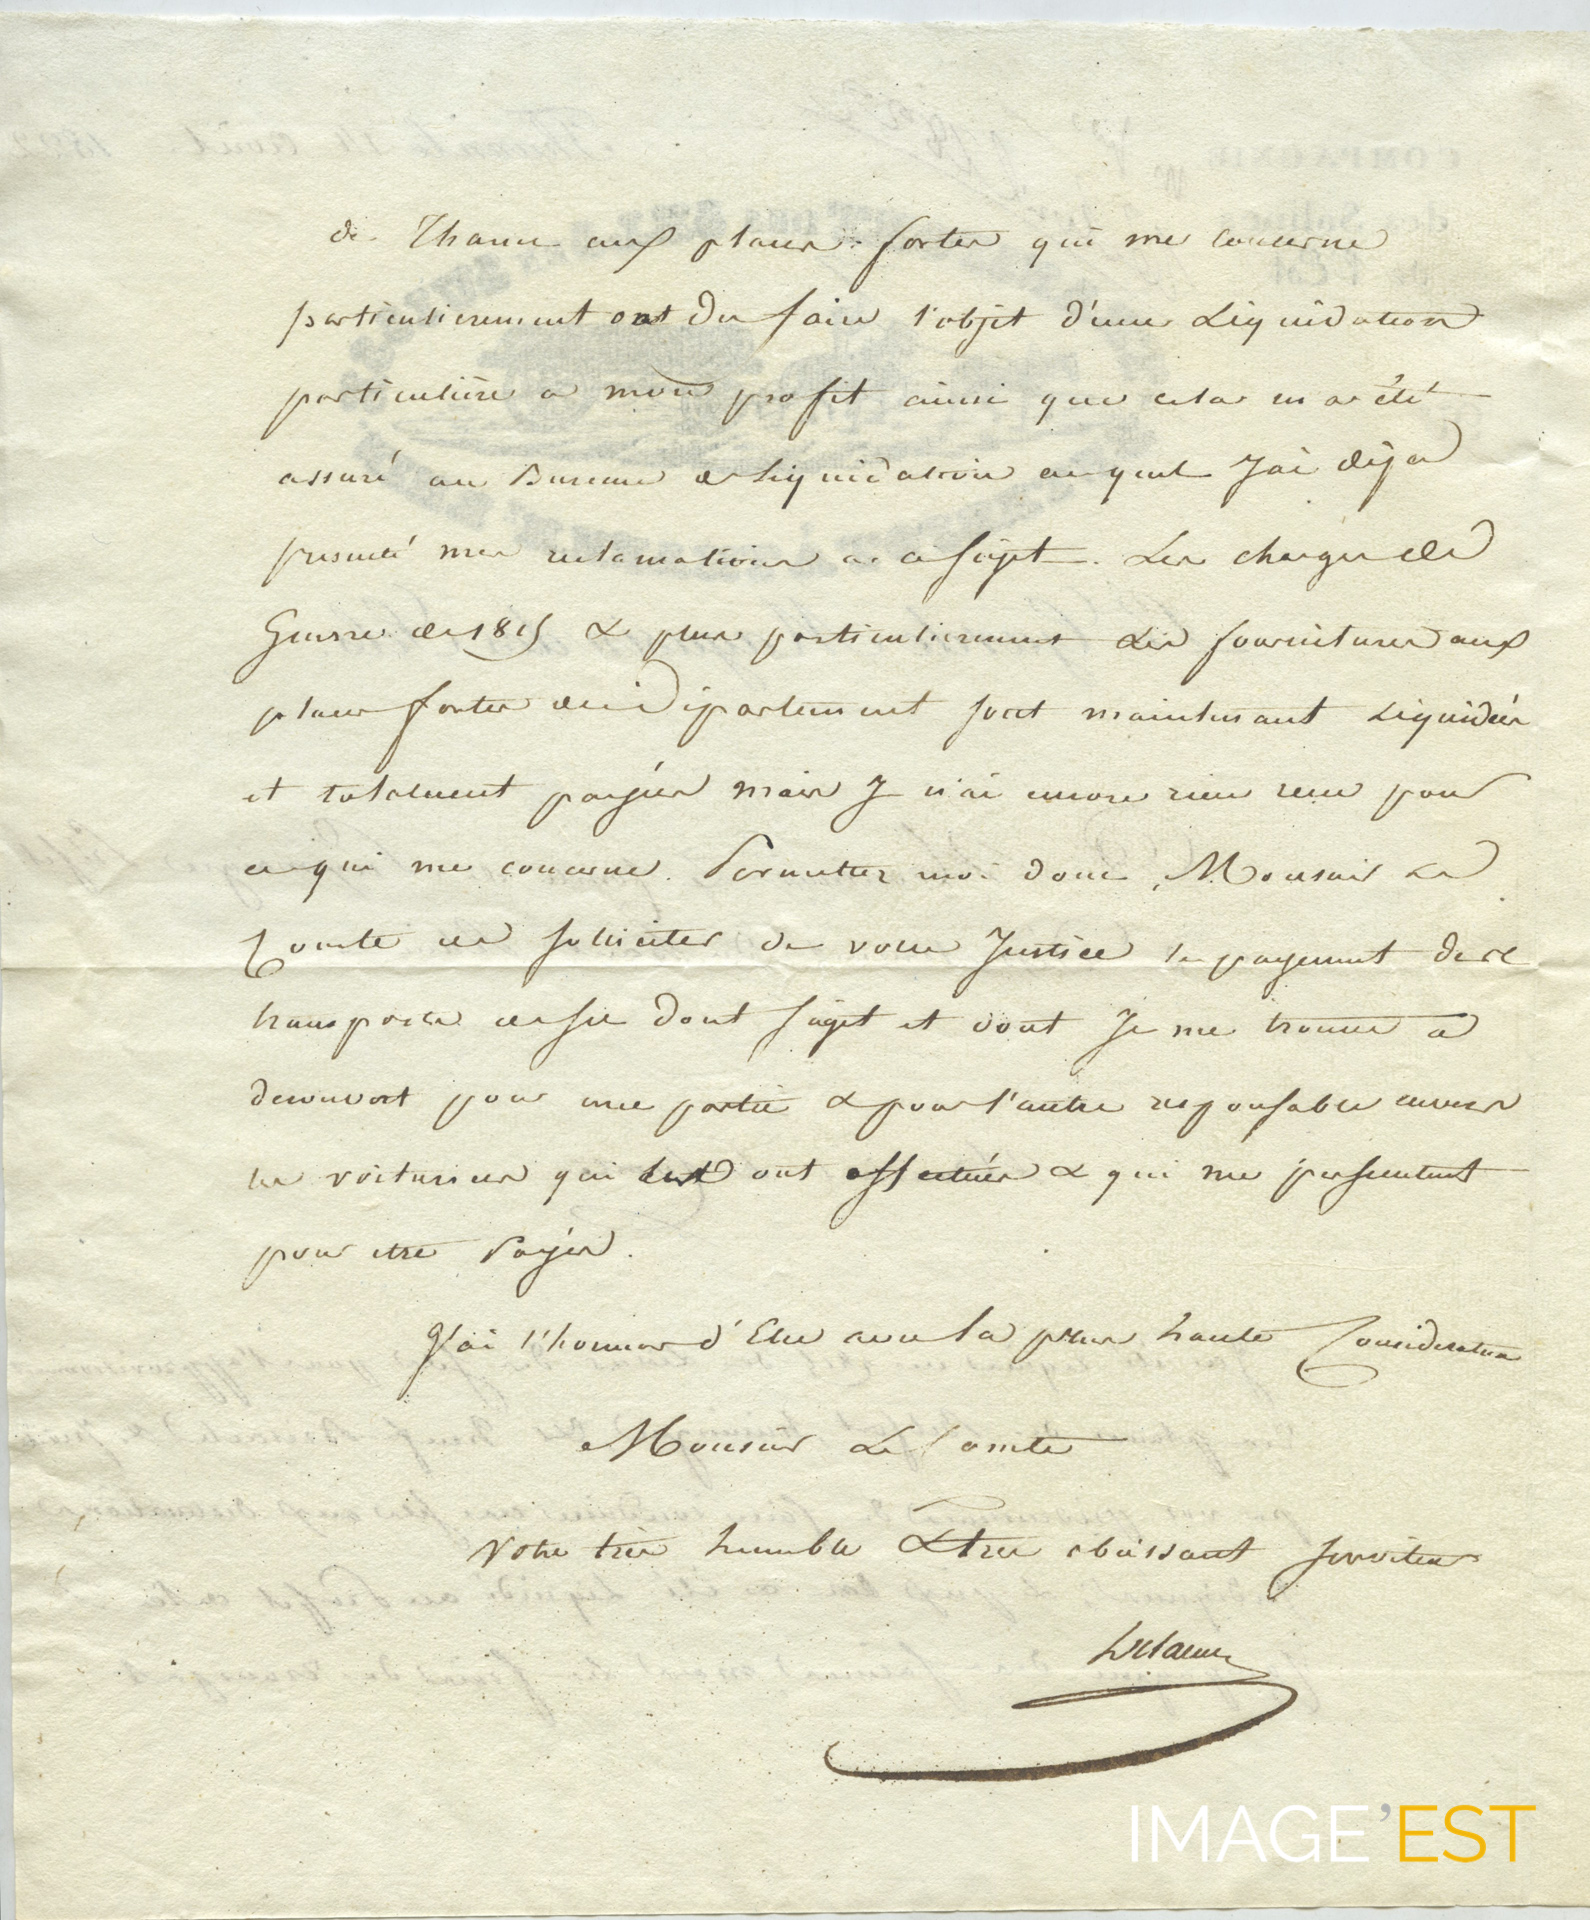 de Thann aux places fortes qui me concerne
particulierement ont du faire l'objet d'une Liquidation
particulière a mon profit ainsi que cela m'a été
assuré au Bureau de Liquidation auquel J'ai déja
presenté mes reclamations a ce sujet. Les charges de
Guerre de 1815 & plus particulierement Les fournitures aux
places fortes du département sont maintenant Liquidées
et totalement payées mais Je n'ai encore rien reçu pour
ce qui me concerne. Permettez moi donc, Monsieur Le
Comte de solliciter de votre Justice le payement de ce
transport de sel dont s'agit et dont Je me trouve a
decouvert pour une partie & pour l'autre responsable envers
les voituriers qui les ont effectués & qui me persecutent
pour etre Payés.
J'ai l'honneur d'Etre avec la plus haute Consideration
Monsieur Le Comte
Votre très humble & très obeissant serviteur
IMAGE'EST